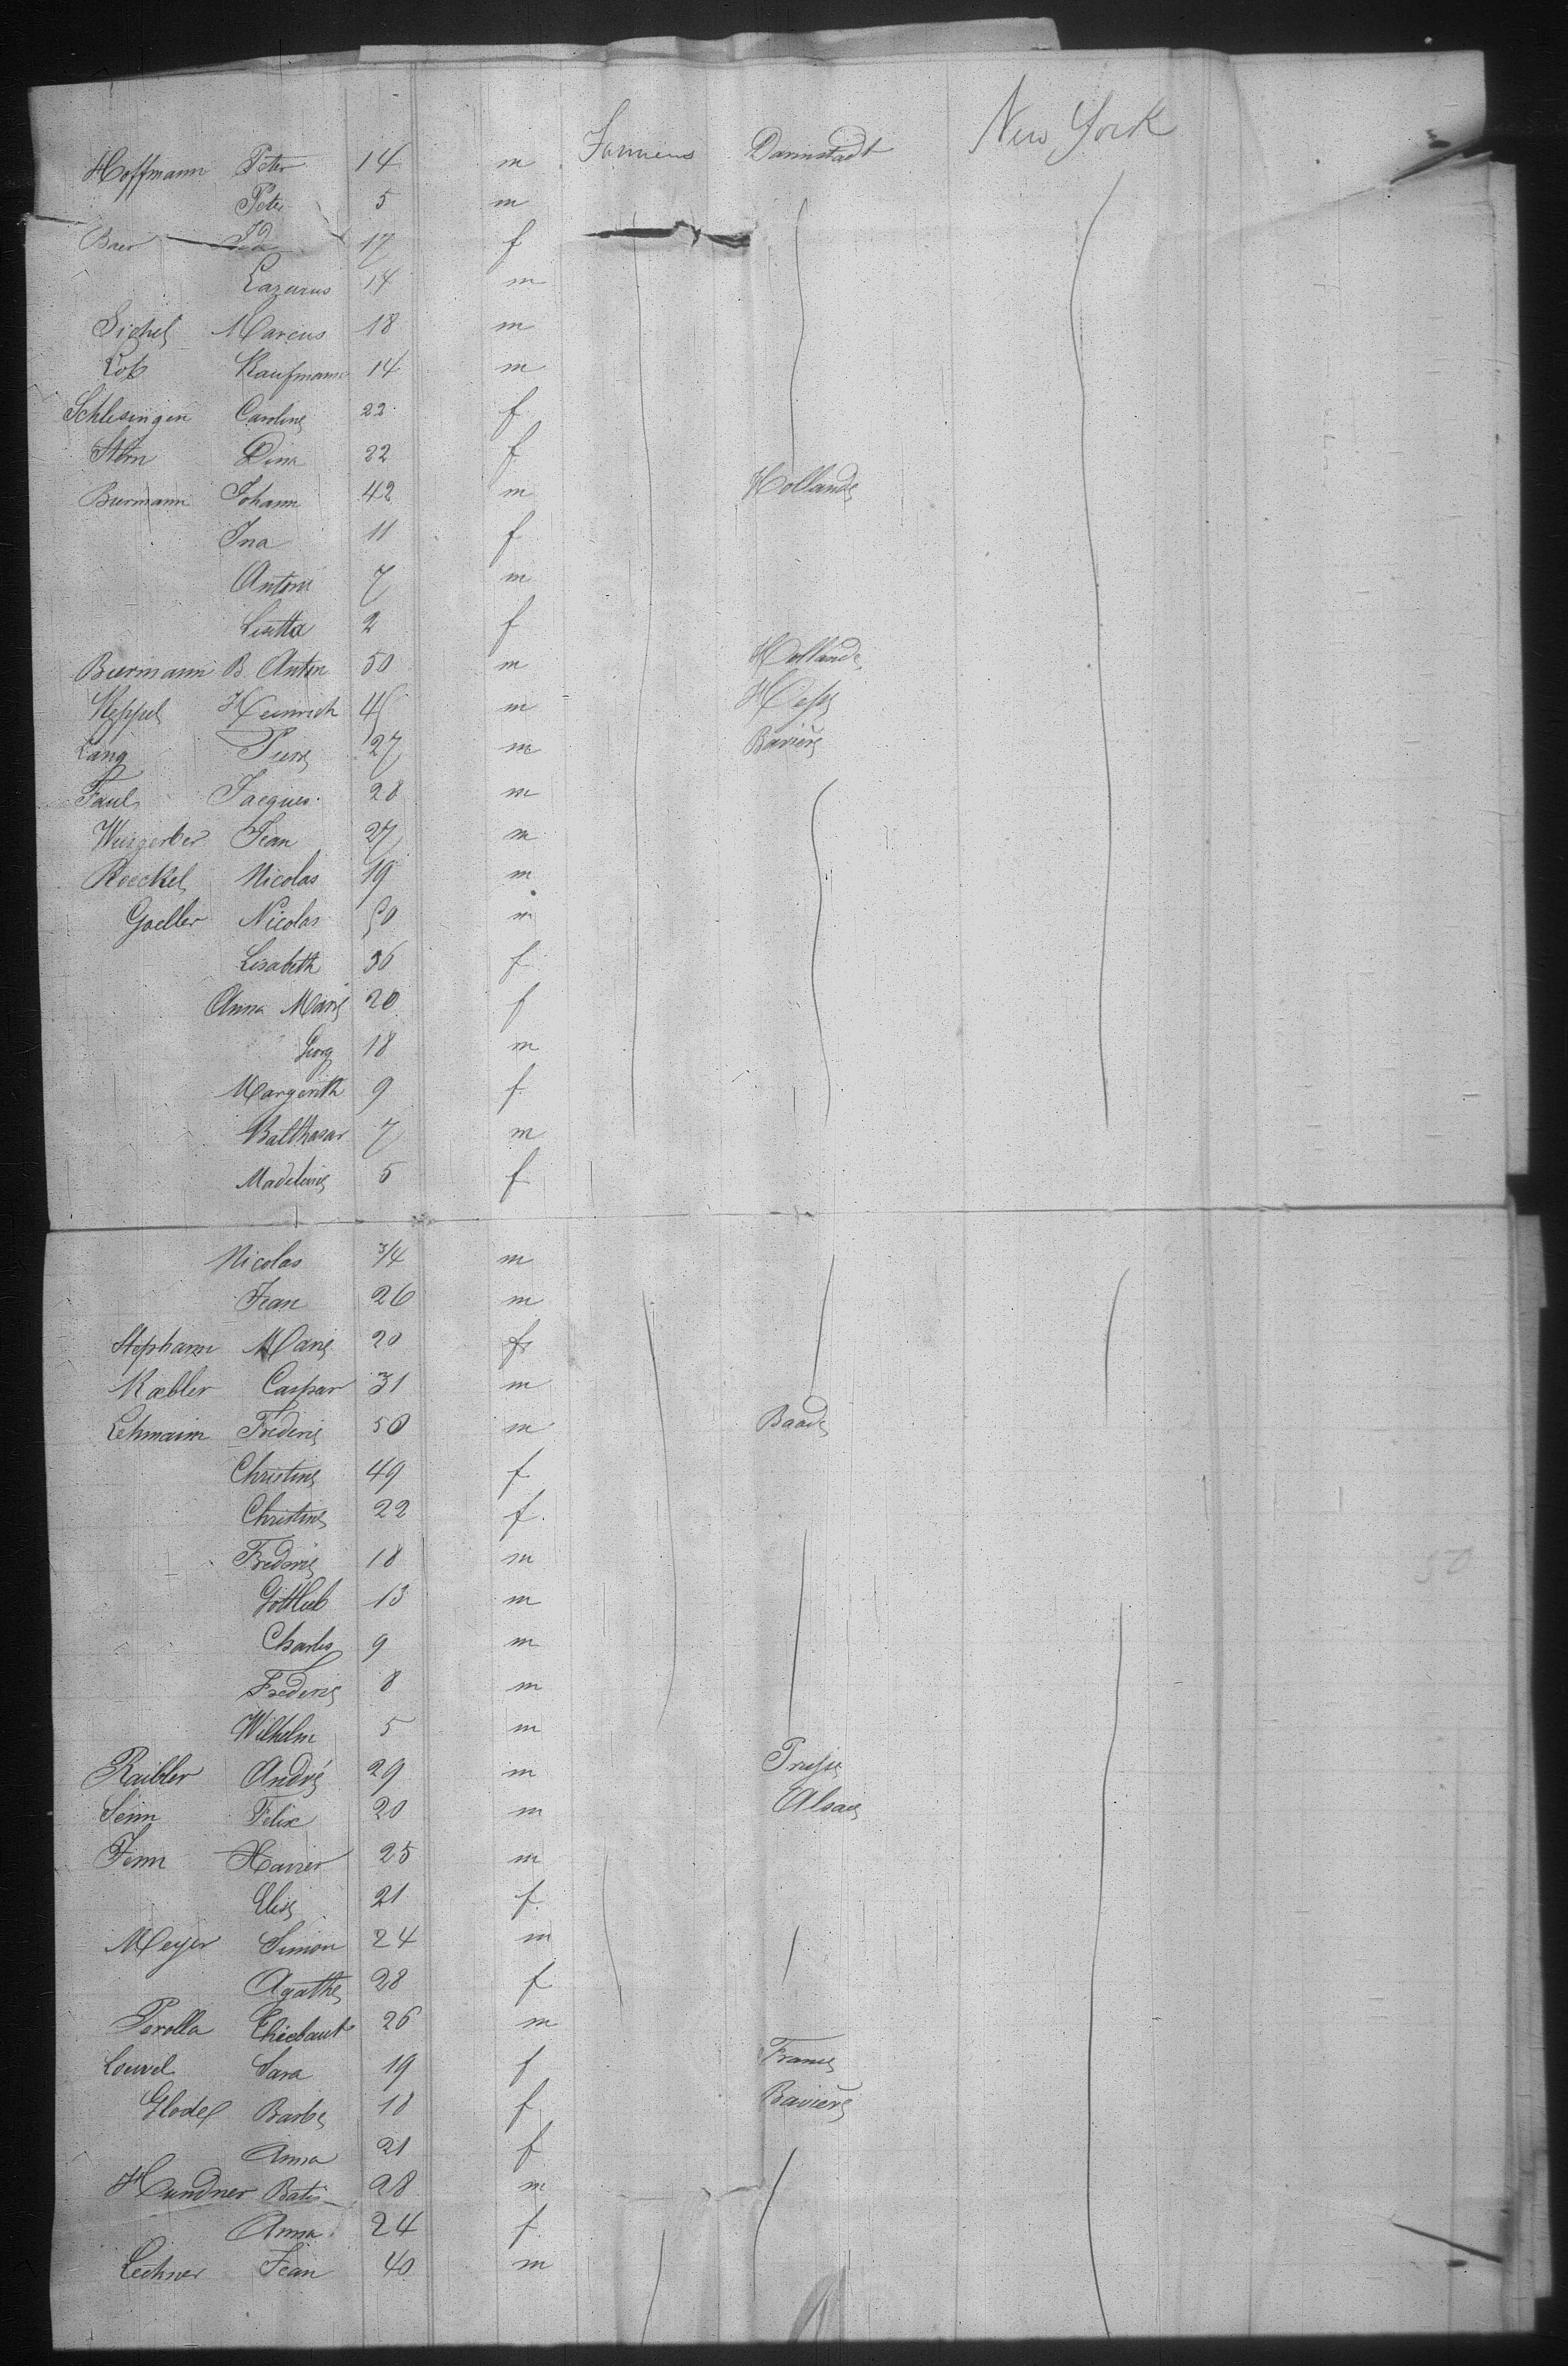 Hoffmann Peter 14 m Farmers Darmstadt New York
Peter 5 m
Baer Ida 17 f
Lazarus 14 m
Sichel Marcus 18 m
Lob Kaufmann 14 m
Schlesinger Caroline 22 f
Stern Dina 22 f
Buermann Johann 42 m Hollande
Ina 11 f
Anton 7 m
Lisetta 2 f
Buermann B. Anton 50 m Hollande
Keppel Heinrich 45 m Hesse
Lang Pierre 27 m Bavière
Faul Jacques 28 m
Weisgerber Jean 27 m
Roeckel Nicolas 19 m
Goeller Nicolas 50 m
Lisabeth 36 f
Anna Marie 20 f
Georg 18 m
Margerith 9 f
Balthasar 7 m
Madeleine 5 f
Nicolas 3/4 m
Jean 26 m
Stephann Marie 20 f
Kæbler Caspar 31 m
Lehmann Frederic 50 m Baade
Christine 49 f
Christine 22 f
Frederic 18 m
Gottlieb 13 m
Charles 9 m
Frederic 8 m
Wilhelm 5 m
Raibler André 29 m Prusse
Senn Felix 20 m Alsace
Fenn Xavier 25 m
Elise 21 f
Meyer Simon 24 m
Agathe 28 f
Perolla Thiebaut 26 m
Louvel Sara 19 f France
Glodel Barbe 18 f Bavière
Anna 21 f
Hundner Batis 28 m
Anna 24 f
Lechner Jean 40 m